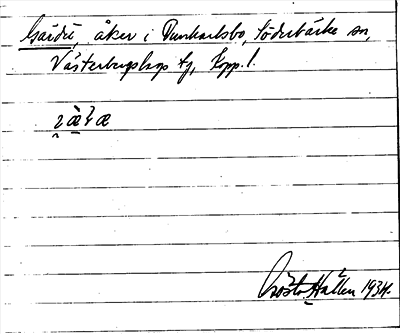 Gärdet, åker i Dunkarlsbo, Söderbärke sn,
Västerbergslags tg, Kopp. l.
Gösta Hallén 1934.